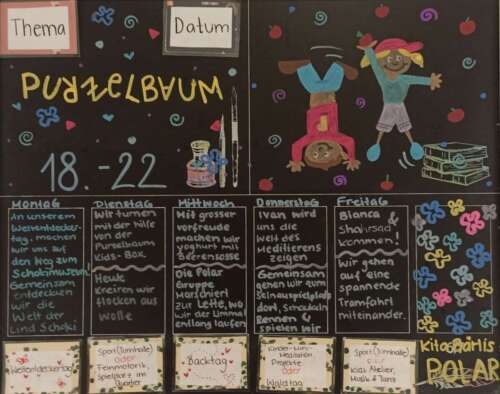 Thema
Datum
PURZELBAUM
18.-22
Montag
An unserem
Weltentdecker-
tag, machen
wir uns auf
den Weg zum
Schokimuseum!
Gemeinsam
entdecken
wir die
Welt der
Lind Schoki
Dienstag
Wir turnen
mit der Hilfe
von der
Purselbaum
Kids-Box.
Heute
kreiren wir
flocken aus
Wolle
Mittwoch
Mit grosser
vorfreude
machen wir
yoghurt mit
Beerensosse
Die Polar
Gruppe
Marschiert
zur Lette, wo
wir der Limmat
entlang laufen
Donnerstag
Ivan wird
uns die
Welt des
Meditierens
zeigen
Gemeinsam
gehen wir zum
dort, Schaukeln
Rennen &
spielen wir
Freitag
Bianca &
kommen!
Wir gehen
auf eine
spannende
Tramfahrt
miteinander.
Weltentdeckertag
Sport (Turnhalle)
oder
Feinmotorik,
Spielplatz im
Quartier
Backtag
Projekte
oder
Waldtag
Sport (Turnhalle)
oder
Kids Atelier,
Musik & Tanz
Kita Bärlis
POLAR